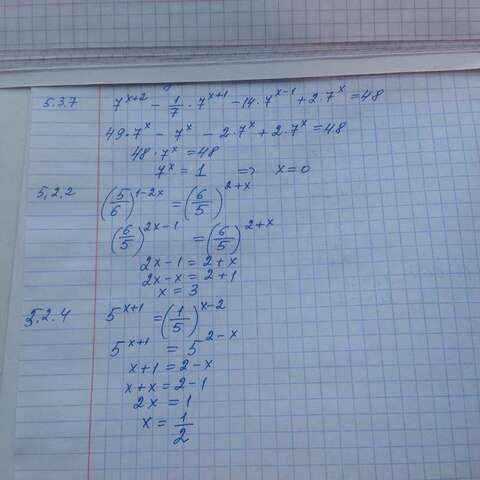 5.3.7 7^{x+2} - \frac{1}{7} \cdot 7^{x+1} - 14 \cdot 7^{x-1} + 2 \cdot 7^x = 48
49 \cdot 7^x - 7^x - 2 \cdot 7^x + 2 \cdot 7^x = 48
48 \cdot 7^x = 48
7^x = 1 => x = 0
5.2.2 (\frac{5}{6})^{1-2x} = (\frac{6}{5})^{2+x}
(\frac{6}{5})^{2x-1} = (\frac{6}{5})^{2+x}
2x - 1 = 2 + x
2x - x = 2 + 1
x = 3
5.2.4 5^{x+1} = (\frac{1}{5})^{x-2}
5^{x+1} = 5^{2-x}
x + 1 = 2 - x
x + x = 2 - 1
2x = 1
x = \frac{1}{2}